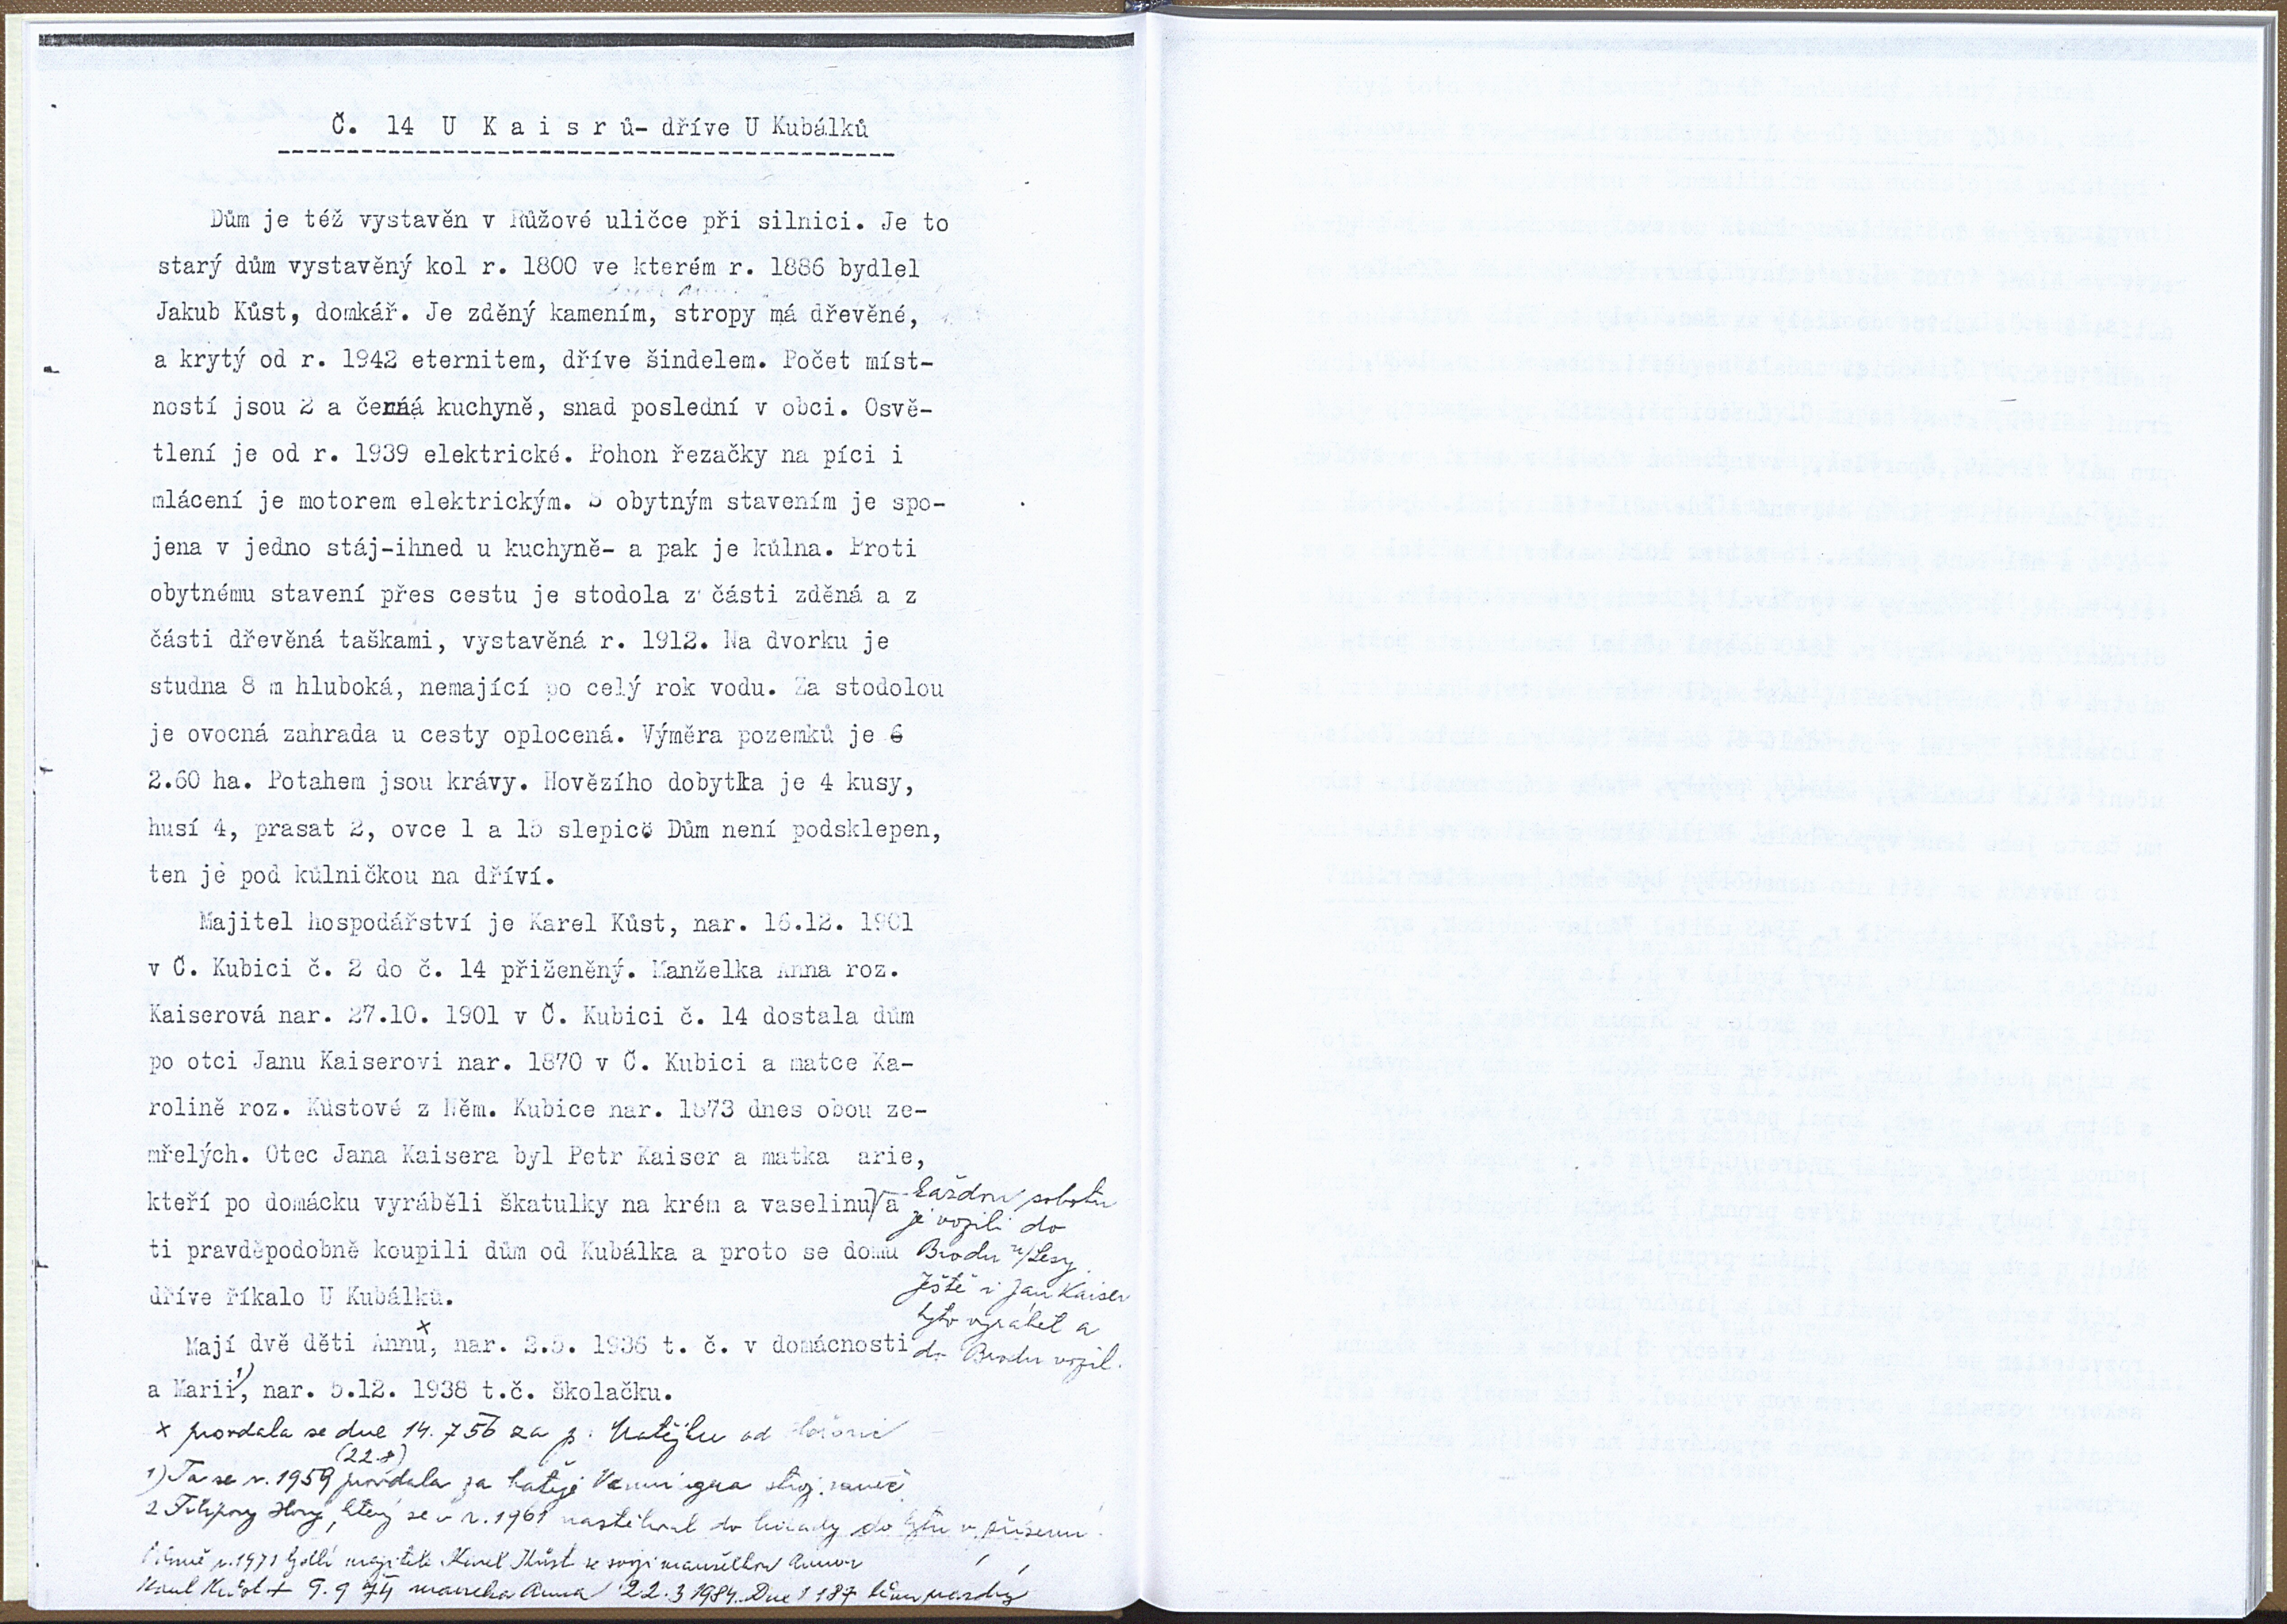 Č. 14 U K a i s r ů- dříve U Kubálků
Dům je též vystavěn v Růžové uličce při silnici. Je to
starý dům vystavěný kol r. 1800 ve kterém r. 1886 bydlel
Jakub Kůst, domkář. Je zděný kamením, stropy má dřevěné,
a krytý od r. 1942 eternitem, dříve šindelem. Počet míst-
ností jsou 2 a černá kuchyně, snad poslední v obci. Osvě-
tlení je od r. 1939 elektrické. Pohon řezačky na píci i
mlácení je motorem elektrickým. S obytným stavením je spo-
jena v jedno stáj-ihned u kuchyně- a pak je kůlna. Proti
obytnému stavení přes cestu je stodola z části zděná a z
části dřevěná taškami, vystavěná r. 1912. Na dvorku je
studna 8 m hluboká, nemající po celý rok vodu. Za stodolou
je ovocná zahrada u cesty oplocená. Výměra pozemků je 6
2.60 ha. Potahem jsou krávy. Hovězího dobytka je 4 kusy,
husí 4, prasat 2, ovce 1 a 15 slepic. Dům není podsklepen,
ten je pod kůlničkou na dříví.
Majitel hospodářství je Karel Kůst, nar. 16.12. 1901
v Č. Kubici č. 2 do č. 14 přiženěný. Manželka Anna roz.
Kaiserová nar. 27.10. 1901 v Č. Kubici č. 14 dostala dům
po otci Janu Kaiserovi nar. 1870 v Č. Kubici a matce Ka-
rolině roz. Kůstové z Něm. Kubice nar. 1873 dnes obou ze-
mřelých. Otec Jana Kaisera byl Petr Kaiser a matka arie,
kteří po domácku vyráběli škatulky na krém a vaselinu a
každou sobotu
je vozili do
ti pravděpodobně koupili dům od Kubálka a proto se domu
Brodu n/Lesy.
dříve říkalo U Kubálků.
Ještě i Jan Kaiser
tyto vyráběl a
Mají dvě děti Annu x, nar. 2.5. 1936 t. č. v domácnosti
do Brodu vozil.
a Marii 1), nar. 5.12. 1938 t.č. školačku.
x provdala se dne 14. 7 56 za p. Matějku od
(22.8)
1) Ta se r. 1959 provdala za Matěje stroj.
z Filipovy Hory, který se v r. 1961 nastěhoval do do bytu v přízemí.
r. 1971 bydlí majitelé Karel Kůst se svojí manželkou Annou
Karel Kůst + 9. 9 74 manželka Anna 22. 3 1984. Dne 1 1 87 dům